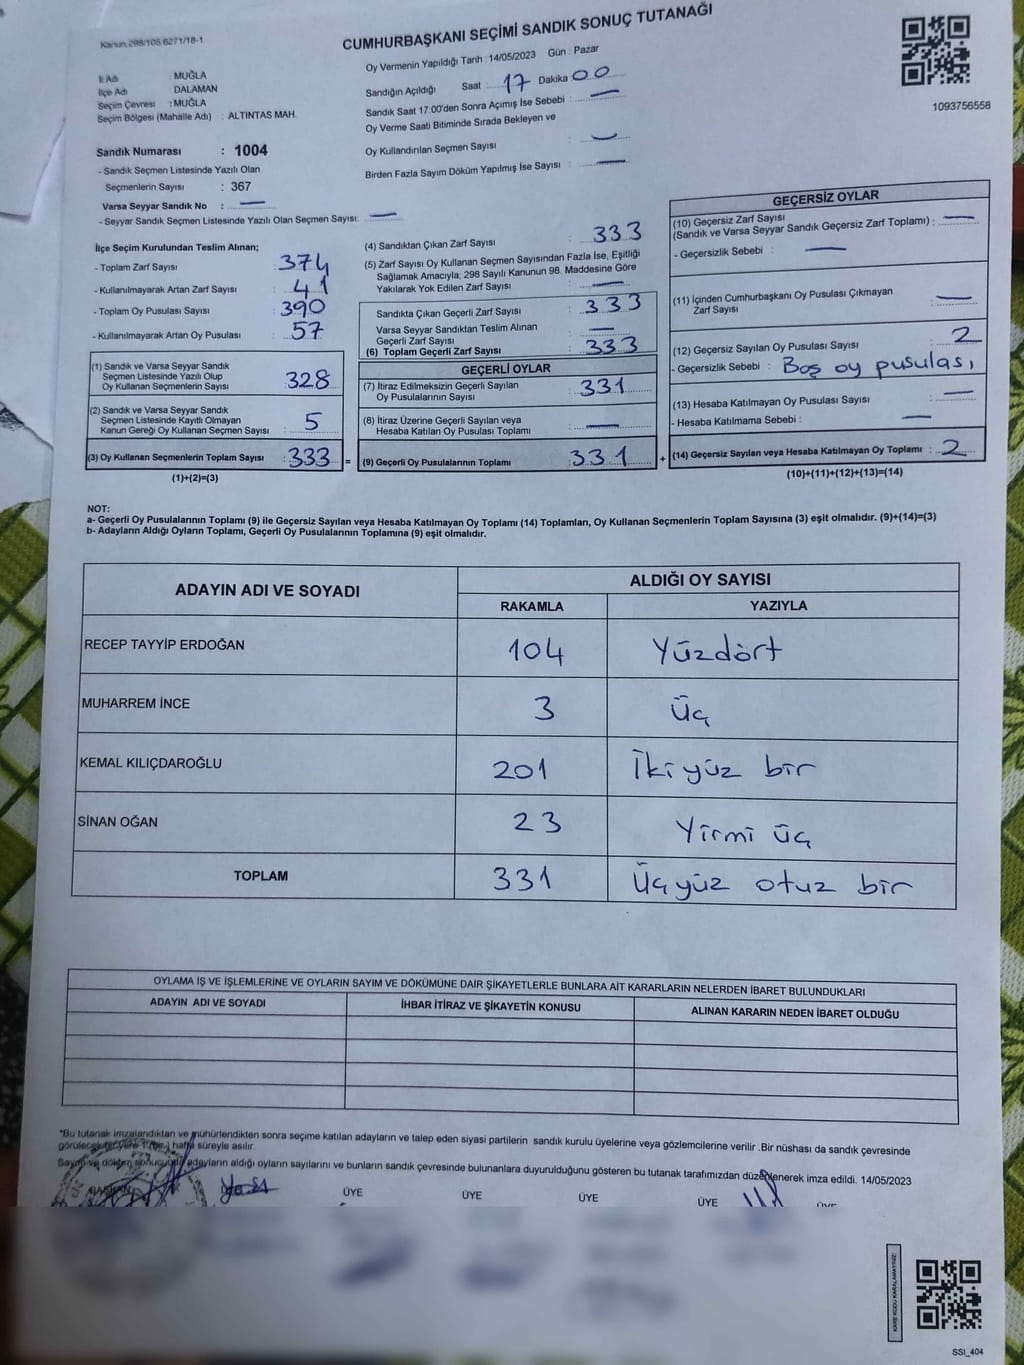 Kanun:298/105,6271/18-1
CUMHURBAŞKANI SEÇİMİ SANDIK SONUÇ TUTANAĞI
1093756558
İl Adı : MUĞLA
İlçe Adı : DALAMAN
Seçim Çevresi : MUĞLA
Seçim Bölgesi (Mahalle Adı) : ALTINTAS MAH.
Sandık Numarası : 1004
- Sandık Seçmen Listesinde Yazılı Olan
Seçmenlerin Sayısı : 367
Varsa Seyyar Sandık No : —
- Seyyar Sandık Seçmen Listesinde Yazılı Olan Seçmen Sayısı: —
Oy Vermenin Yapıldığı Tarih : 14/05/2023 Gün : Pazar
Sandığın Açıldığı Saat : 17 Dakika 00
Sandık Saat 17:00'den Sonra Açımış İse Sebebi : —
Oy Verme Saati Bitiminde Sırada Bekleyen ve
Oy Kullandırılan Seçmen Sayısı : —
Birden Fazla Sayım Döküm Yapılmış İse Sayısı : —
İlçe Seçim Kurulundan Teslim Alınan;
- Toplam Zarf Sayısı : 374
- Kullanılmayarak Artan Zarf Sayısı : 41
- Toplam Oy Pusulası Sayısı : 390
- Kullanılmayarak Artan Oy Pusulası : 57
(1) Sandık ve Varsa Seyyar Sandık
Seçmen Listesinde Yazılı Olup
Oy Kullanan Seçmenlerin Sayısı : 328
(2) Sandık ve Varsa Seyyar Sandık
Seçmen Listesinde Kayıtlı Olmayan
Kanun Gereği Oy Kullanan Seçmen Sayısı : 5
(3) Oy Kullanan Seçmenlerin Toplam Sayısı : 333 =
(1)+(2)=(3)
(4) Sandıktan Çıkan Zarf Sayısı : 333
(5) Zarf Sayısı Oy Kullanan Seçmen Sayısından Fazla İse, Eşitliği
Sağlamak Amacıyla; 298 Sayılı Kanunun 98. Maddesine Göre
Yakılarak Yok Edilen Zarf Sayısı : —
Sandıkta Çıkan Geçerli Zarf Sayısı : 333
Varsa Seyyar Sandıktan Teslim Alınan
Geçerli Zarf Sayısı : —
(6) Toplam Geçerli Zarf Sayısı : 333
GEÇERLİ OYLAR
(7) İtiraz Edilmeksizin Geçerli Sayılan
Oy Pusulalarının Sayısı : 331
(8) İtiraz Üzerine Geçerli Sayılan veya
Hesaba Katılan Oy Pusulası Toplamı : —
(9) Geçerli Oy Pusulalarının Toplamı : 331 +
GEÇERSİZ OYLAR
(10) Geçersiz Zarf Sayısı
(Sandık ve Varsa Seyyar Sandık Geçersiz Zarf Toplamı) : —
- Geçersizlik Sebebi : —
(11) İçinden Cumhurbaşkanı Oy Pusulası Çıkmayan
Zarf Sayısı : —
(12) Geçersiz Sayılan Oy Pusulası Sayısı : 2
- Geçersizlik Sebebi : Boş oy pusulası,
(13) Hesaba Katılmayan Oy Pusulası Sayısı : —
- Hesaba Katılmama Sebebi : —
(14) Geçersiz Sayılan veya Hesaba Katılmayan Oy Toplamı : 2
(10)+(11)+(12)+(13)=(14)
NOT:
a- Geçerli Oy Pusulalarının Toplamı (9) ile Geçersiz Sayılan veya Hesaba Katılmayan Oy Toplamı (14) Toplamları, Oy Kullanan Seçmenlerin Toplam Sayısına (3) eşit olmalıdır. (9)+(14)=(3)
b- Adayların Aldığı Oyların Toplamı, Geçerli Oy Pusulalarının Toplamına (9) eşit olmalıdır.
ADAYIN ADI VE SOYADI ALDIĞI OY SAYISI
RAKAMLA YAZIYLA
RECEP TAYYİP ERDOĞAN 104 Yüzdört
MUHARREM İNCE 3 Üç
KEMAL KILIÇDAROĞLU 201 İkiyüz bir
SİNAN OĞAN 23 Yirmi üç
TOPLAM 331 Üçyüz otuz bir
OYLAMA İŞ VE İŞLEMLERİNE VE OYLARIN SAYIM VE DÖKÜMÜNE DAİR ŞİKAYETLERLE BUNLARA AİT KARARLARIN NELERDEN İBARET BULUNDUKLARI
ADAYIN ADI VE SOYADI İHBAR İTİRAZ VE ŞİKAYETİN KONUSU ALINAN KARARIN NEDEN İBARET OLDUĞU
*Bu tutanak imzalandıktan ve mühürlendikten sonra seçime katılan adayların ve talep eden siyasi partilerin sandık kurulu üyelerine veya gözlemcilerine verilir .Bir nüshası da sandık çevresinde
görülecek bir yere 1 (bir) hafta süreyle asılır.
Sayım ve döküm sonucunda adayların aldığı oyların sayılarını ve bunların sandık çevresinde bulunanlara duyurulduğunu gösteren bu tutanak tarafımızdan düzenlenerek imza edildi. 14/05/2023
BAŞKAN ÜYE ÜYE ÜYE ÜYE
SSI_404